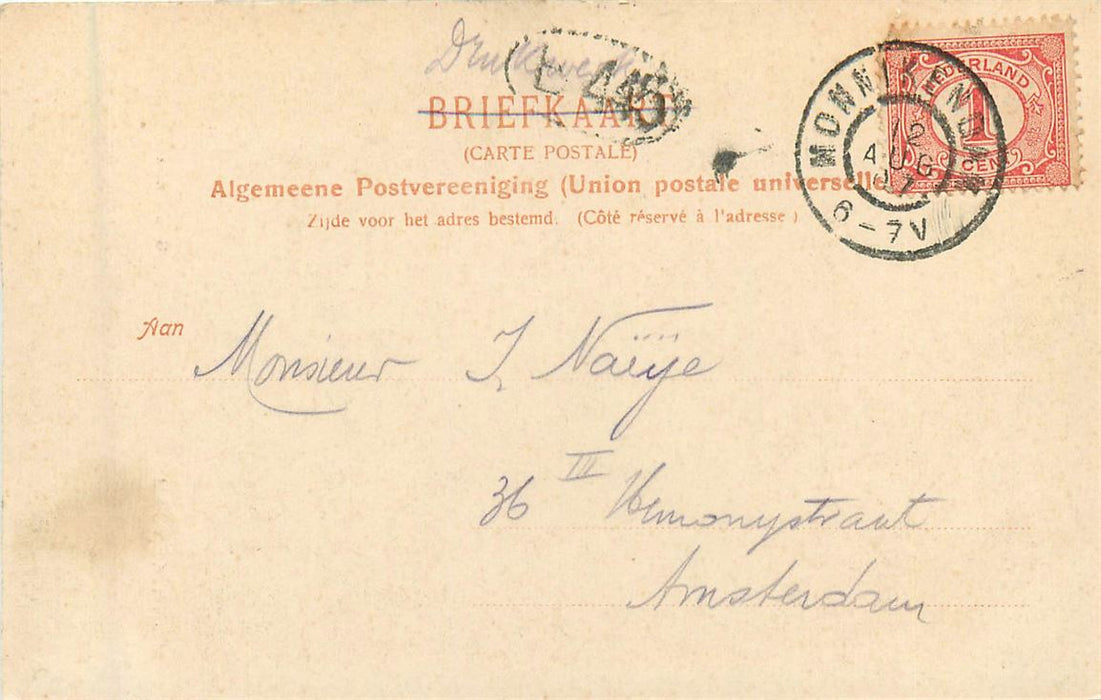 Drukwerk
BRIEFKAART
(CARTE POSTALE)
Algemeene Postvereeniging (Union postale universelle
Zijde voor het adres bestemd. (Côté réservé à l'adresse)
NEDERLAND
1
CENT
MONNIKENDAM
12
AUG
07
6-7V
Aan
Monsieur J. Naÿe
36 III Hemonystraat
Amsterdam